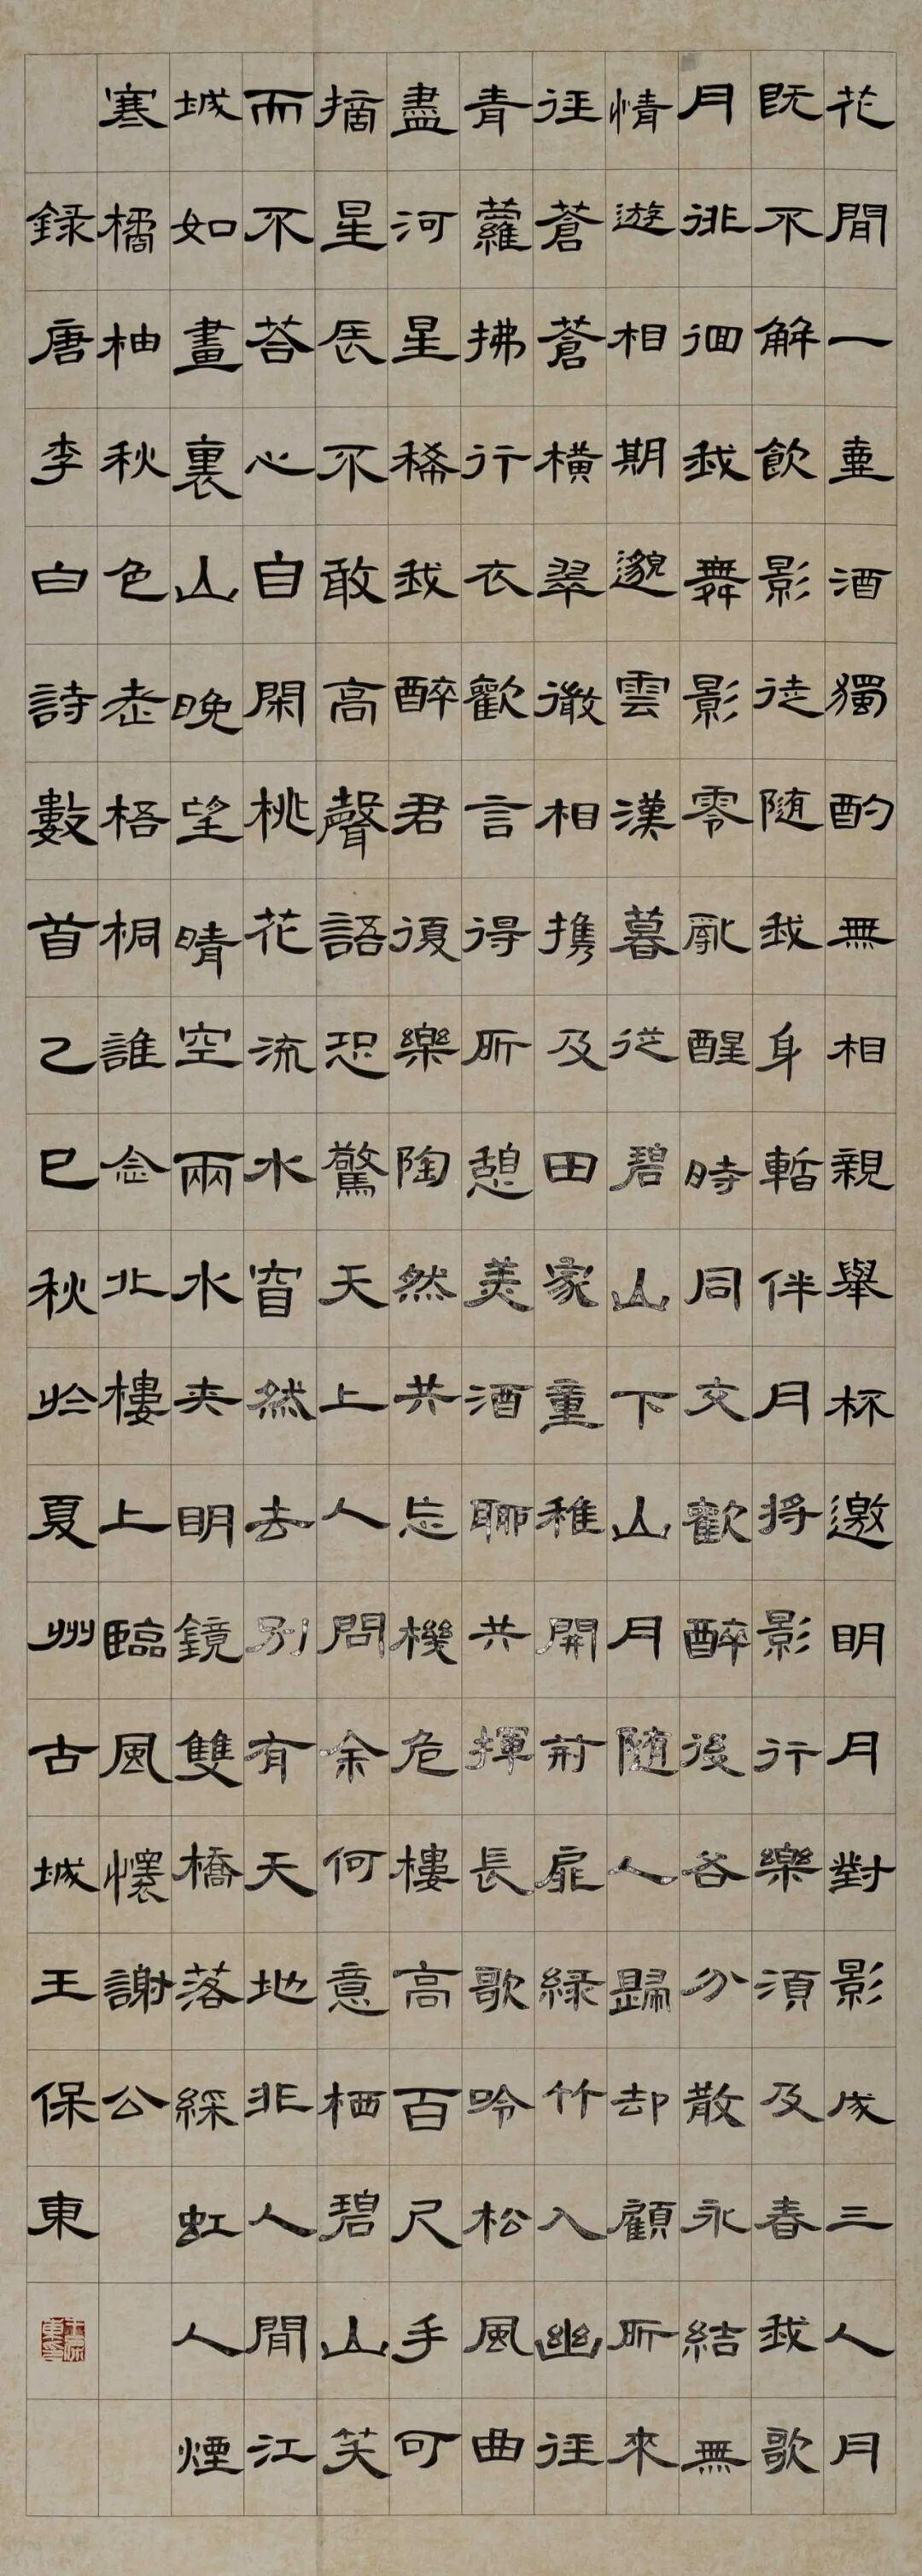 花間一壺酒獨酌無相親舉杯邀明月對影成三人月
既不解飲影徒随我身暫伴月将影行樂須及春我歌
月徘徊我舞影零亂醒時同交歡醉後各分散永結無
情遊相期邈雲漢暮從碧山下山月随人歸却顧所來
徑蒼蒼橫翠微相携及田家童稚開荊扉緑竹入幽徑
青蘿拂行衣歡言得所憩美酒聊共揮長歌吟松風曲
盡河星稀我醉君復樂陶然共忘機危樓高百尺手可
摘星辰不敢高聲語恐驚天上人問余何意栖碧山笑
而不答心自閑桃花流水窅然去別有天地非人間江
城如畫裏山晚望晴空兩水夾明鏡雙橋落綵虹人煙
寒橘柚秋色老梧桐誰念北樓上臨風懷謝公
録唐李白詩數首乙巳秋於夏州古城王保東
王保東印